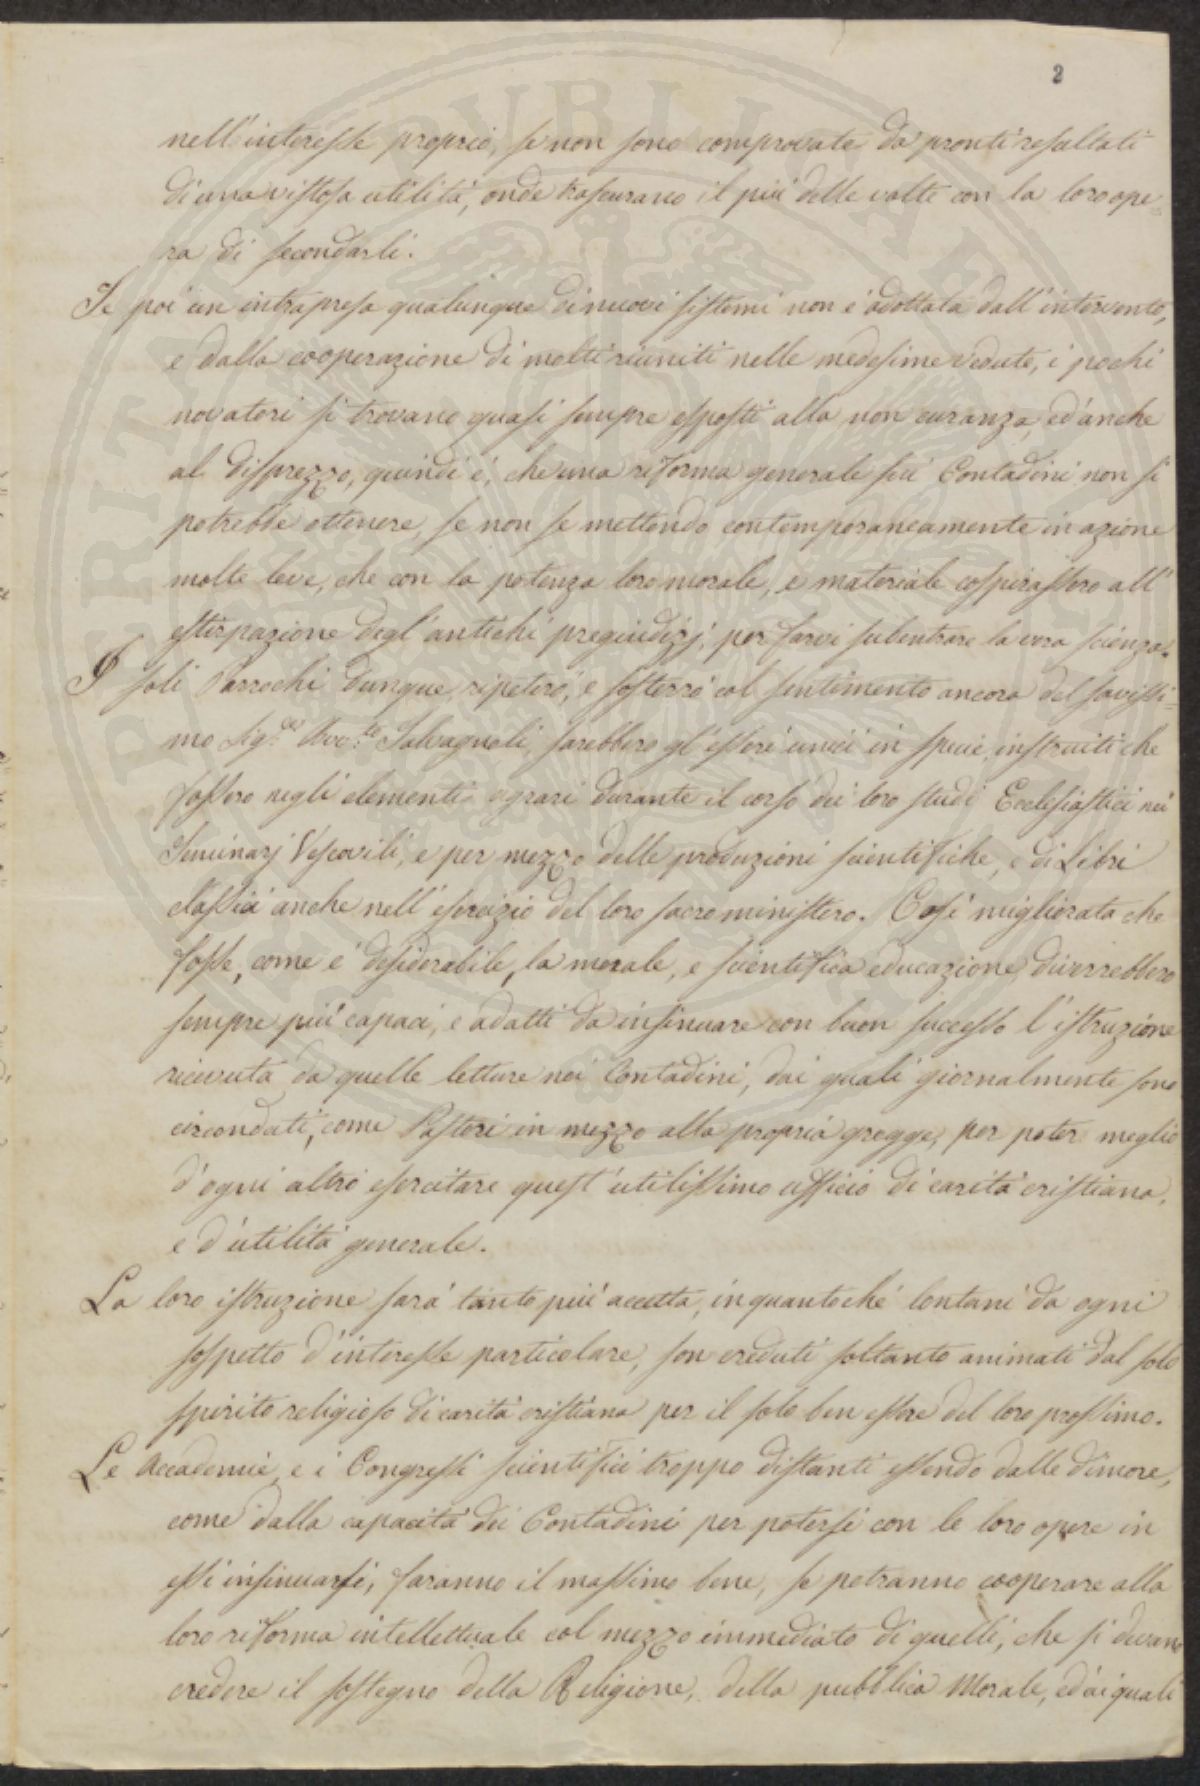 2
nell'interesse proprio, se non sono comprovate da pronti resultati
di una vistosa utilità, onde trascurano il più delle volte con la loro ope=
ra di secondarli.
Se poi un intrapresa qualunque di nuovi sistemi non è adottata dall'intervento,
e dalla cooperazione di molti riuniti nelle medesime vedute, i pochi
novatori si trovano quasi sempre esposti alla non curanza, ed'anche
al disprezzo, quindi è, che una riforma generale sui Contadini non si
potrebbe ottenere, se non se mettendo contemporaneamente in azione
molte leve, che con la potenza loro morale, e materiale cospirassero all'
estirpazione degl'antichi pregiudizj, per farvi subentrare la vera scienza.
I soli Parrochi dunque, ripeterò, e sosterrò col sentimento ancora del savissi=
mo Sig.r Avv.to Salvagnoli, sarebbero gl'esseri unici in specie, instruiti che
fossero negli elementi agrari durante il corso dei loro studi Ecclesiastici nei
Seminarj Vescovili, e per mezzo delle produzioni scientifiche, e di Libri
classici anche nell'esercizio del loro sacro ministero. Così migliorata che
fosse, come è desiderabile, la morale, e scientifica educazione, diverrebbero
sempre più capaci, e adatti da insinuare con buon successo l'istruzione
ricevuta da quelle letture nei Contadini, dai quali giornalmente sono
circondati, come Pastori in mezzo alla propria gregge, per poter meglio
d'ogni altro esercitare quest'utilissimo ufficio di carità cristiana,
e d'utilità generale.
La loro istruzione sarà tanto più accetta, inquantochè lontani da ogni
sospetto d'interesse particolare, son creduti soltanto animati dal solo
spirito religioso di carità cristiana per il solo ben essere del loro prossimo.
Le Accademie, e i Congressi scientifici troppo distanti essendo dalle dimore,
come dalla capacità dei Contadini per potersi con le loro opere in
essi insinuarsi, faranno il massimo bene, se potranno cooperare alla
loro riforma intellettuale col mezzo immediato di quelli, che si devano
credere il sostegno della Religione, della pubblica Morale, ed ai quali